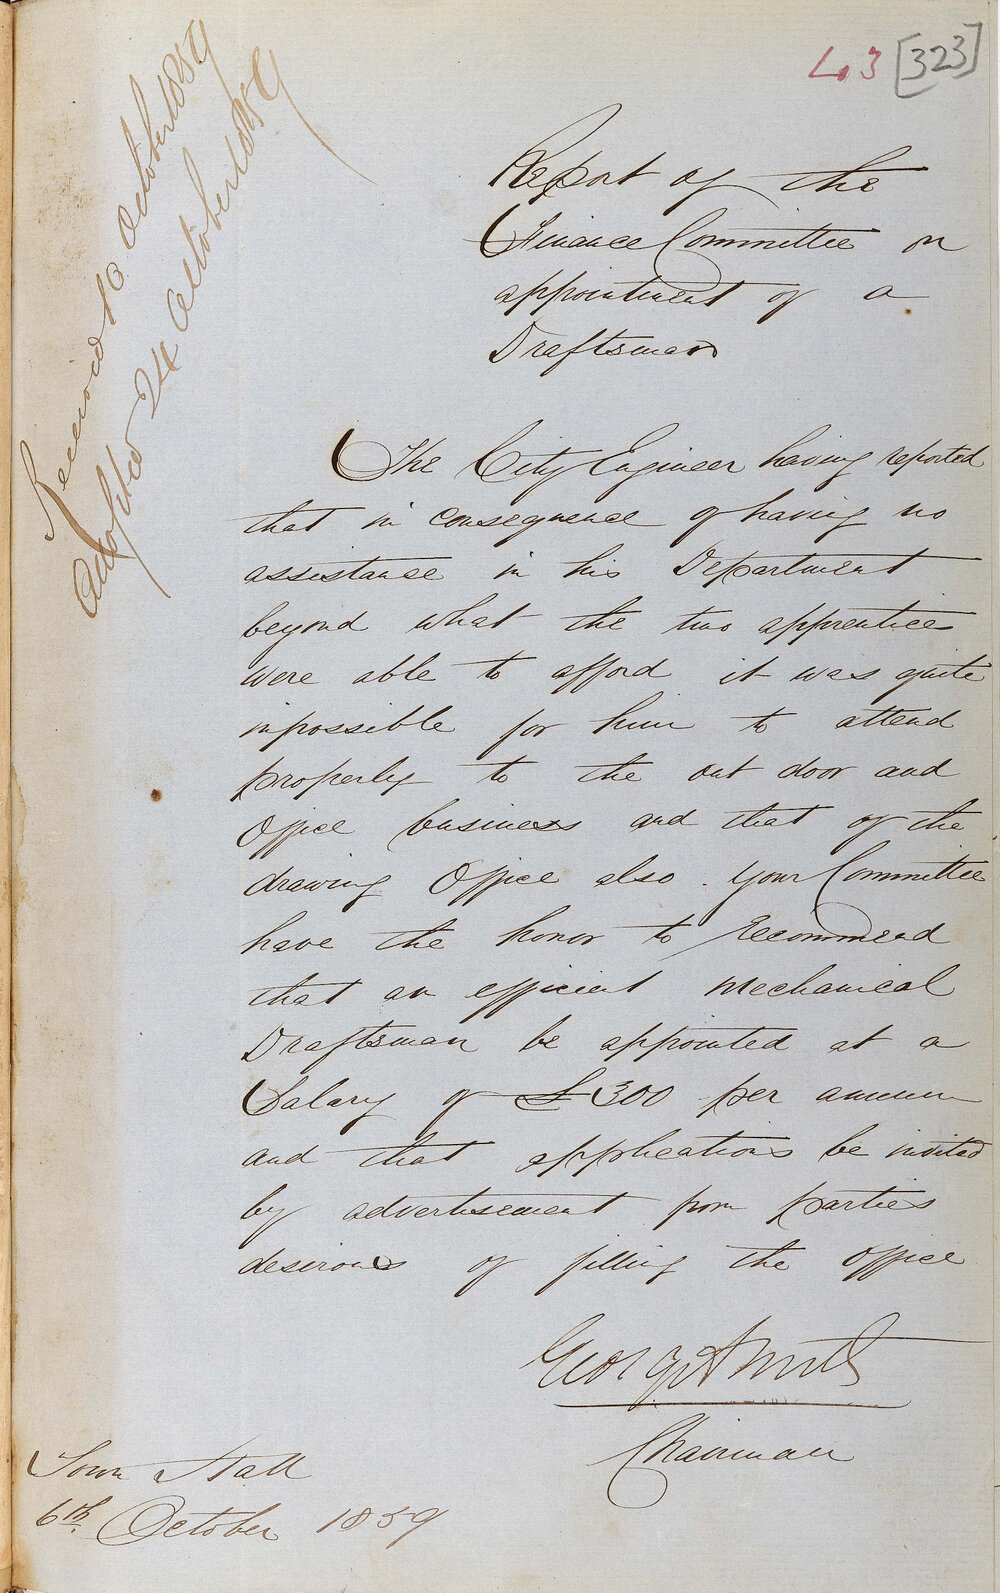 43 [323]
Received 10 October 1859
Adopted 24 October 1859
Report of the
Finance Committee on
appointment of a
Draftsman
The City Engineer having reported
that in consequence of having no
assistance in his Department
beyond what the two apprentices
were able to afford it was quite
impossible for him to attend
properly to the out door and
Office business and that of the
drawing Office also. your Committee
have the honor to recommend
that an efficient Mechanical
Draftsman be appointed at a
Salary of £300 per annum
and that applications be invited
by advertisement from parties
desirous of filling the office
George Smith
Chairman
Town Hall
6th. October 1859